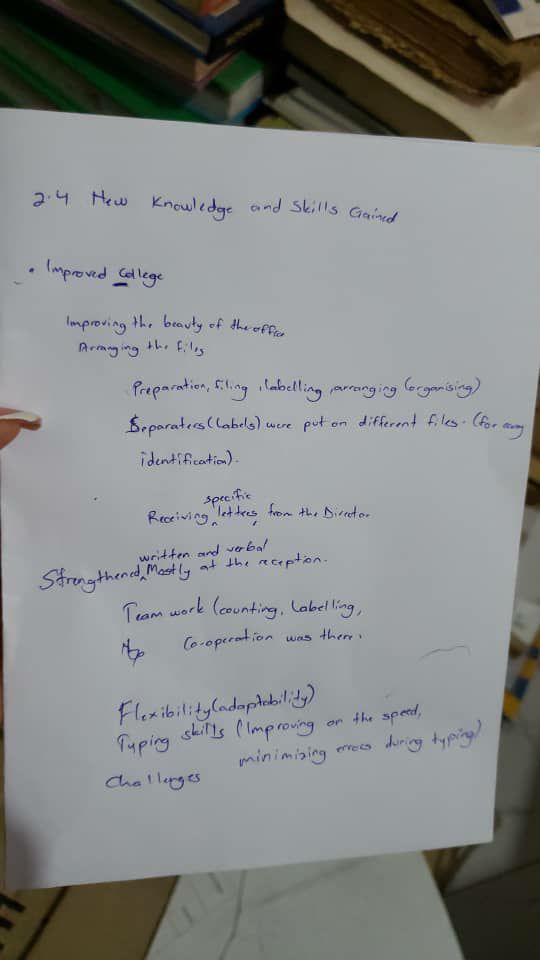 2.4 New Knowledge and Skills Gained
• Improved College
Improving the beauty of the office
Arranging the files
Preparation, filing, labelling, arranging (organising)
Separaters (Labels) were put on different files. (for easy
identification).
specific
Receiving letters, from the Director
written and verbal
Strengthened, Mostly at the reception.
Team work (counting, Labelling,
Co-operation was there.
Flexibility (adaptability)
Typing skills (Improving on the speed,
minimizing errors during typing)
Challenges